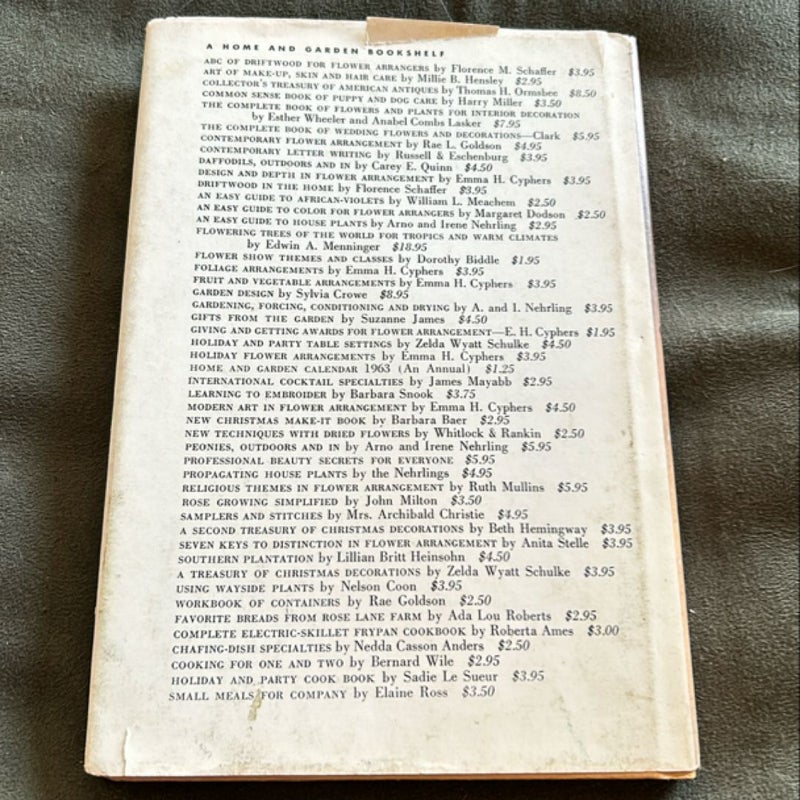 A HOME AND GARDEN BOOKSHELF
ABC OF DRIFTWOOD FOR FLOWER ARRANGERS by Florence M. Schaffer $3.95
ART OF MAKE-UP, SKIN AND HAIR CARE by Millie B. Hensley $2.95
COLLECTOR'S TREASURY OF AMERICAN ANTIQUES by Thomas H. Ormsbee $8.50
COMMON SENSE BOOK OF PUPPY AND DOG CARE by Harry Miller $3.50
THE COMPLETE BOOK OF FLOWERS AND PLANTS FOR INTERIOR DECORATION
by Esther Wheeler and Anabel Combs Lasker $7.95
THE COMPLETE BOOK OF WEDDING FLOWERS AND DECORATIONS—Clark $5.95
CONTEMPORARY FLOWER ARRANGEMENT by Rae L. Goldson $4.95
CONTEMPORARY LETTER WRITING by Russell & Eschenburg $3.95
DAFFODILS, OUTDOORS AND IN by Carey E. Quinn $4.50
DESIGN AND DEPTH IN FLOWER ARRANGEMENT by Emma H. Cyphers $3.95
DRIFTWOOD IN THE HOME by Florence Schaffer $3.95
AN EASY GUIDE TO AFRICAN-VIOLETS by William L. Meachem $2.50
AN EASY GUIDE TO COLOR FOR FLOWER ARRANGERS by Margaret Dodson $2.50
AN EASY GUIDE TO HOUSE PLANTS by Arno and Irene Nehrling $2.95
FLOWERING TREES OF THE WORLD FOR TROPICS AND WARM CLIMATES
by Edwin A. Menninger $18.95
FLOWER SHOW THEMES AND CLASSES by Dorothy Biddle $1.95
FOLIAGE ARRANGEMENTS by Emma H. Cyphers $3.95
FRUIT AND VEGETABLE ARRANGEMENTS by Emma H. Cyphers $3.95
GARDEN DESIGN by Sylvia Crowe $8.95
GARDENING, FORCING, CONDITIONING AND DRYING by A. and I. Nehrling $3.95
GIFTS FROM THE GARDEN by Suzanne James $4.50
GIVING AND GETTING AWARDS FOR FLOWER ARRANGEMENT—E. H. Cyphers $1.95
HOLIDAY AND PARTY TABLE SETTINGS by Zelda Wyatt Schulke $4.50
HOLIDAY FLOWER ARRANGEMENTS by Emma H. Cyphers $3.95
HOME AND GARDEN CALENDAR 1963 (An Annual) $1.25
INTERNATIONAL COCKTAIL SPECIALTIES by James Mayabb $2.95
LEARNING TO EMBROIDER by Barbara Snook $3.75
MODERN ART IN FLOWER ARRANGEMENT by Emma H. Cyphers $4.50
NEW CHRISTMAS MAKE-IT BOOK by Barbara Baer $2.95
NEW TECHNIQUES WITH DRIED FLOWERS by Whitlock & Rankin $2.50
PEONIES, OUTDOORS AND IN by Arno and Irene Nehrling $5.95
PROFESSIONAL BEAUTY SECRETS FOR EVERYONE $5.95
PROPAGATING HOUSE PLANTS by the Nehrlings $4.95
RELIGIOUS THEMES IN FLOWER ARRANGEMENT by Ruth Mullins $5.95
ROSE GROWING SIMPLIFIED by John Milton $3.50
SAMPLERS AND STITCHES by Mrs. Archibald Christie $4.95
A SECOND TREASURY OF CHRISTMAS DECORATIONS by Beth Hemingway $3.95
SEVEN KEYS TO DISTINCTION IN FLOWER ARRANGEMENT by Anita Stelle $3.95
SOUTHERN PLANTATION by Lillian Britt Heinsohn $4.50
A TREASURY OF CHRISTMAS DECORATIONS by Zelda Wyatt Schulke $3.95
USING WAYSIDE PLANTS by Nelson Coon $3.95
WORKBOOK OF CONTAINERS by Rae Goldson $2.50
FAVORITE BREADS FROM ROSE LANE FARM by Ada Lou Roberts $2.95
COMPLETE ELECTRIC-SKILLET FRYPAN COOKBOOK by Roberta Ames $3.00
CHAFING-DISH SPECIALTIES by Nedda Casson Anders $2.50
COOKING FOR ONE AND TWO by Bernard Wile $2.95
HOLIDAY AND PARTY COOK BOOK by Sadie Le Sueur $3.95
SMALL MEALS FOR COMPANY by Elaine Ross $3.50